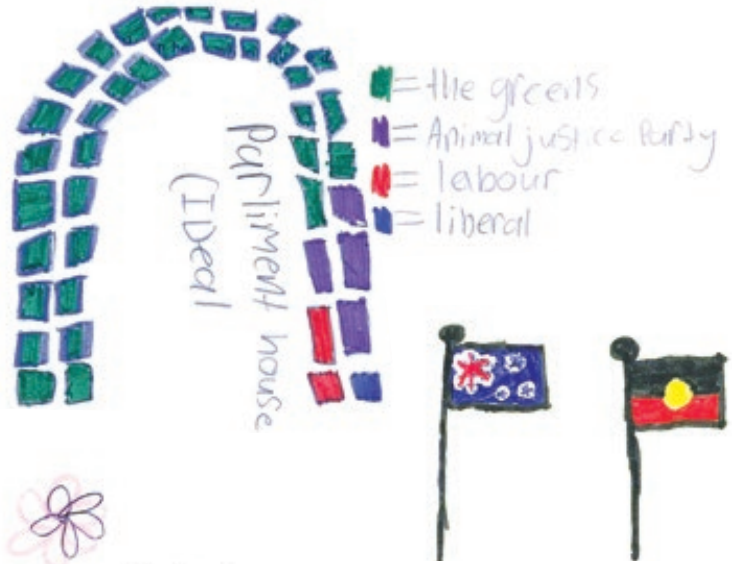 = the greens
= Animal justice Party
= labour
= liberal
Parliment house
(IDeal